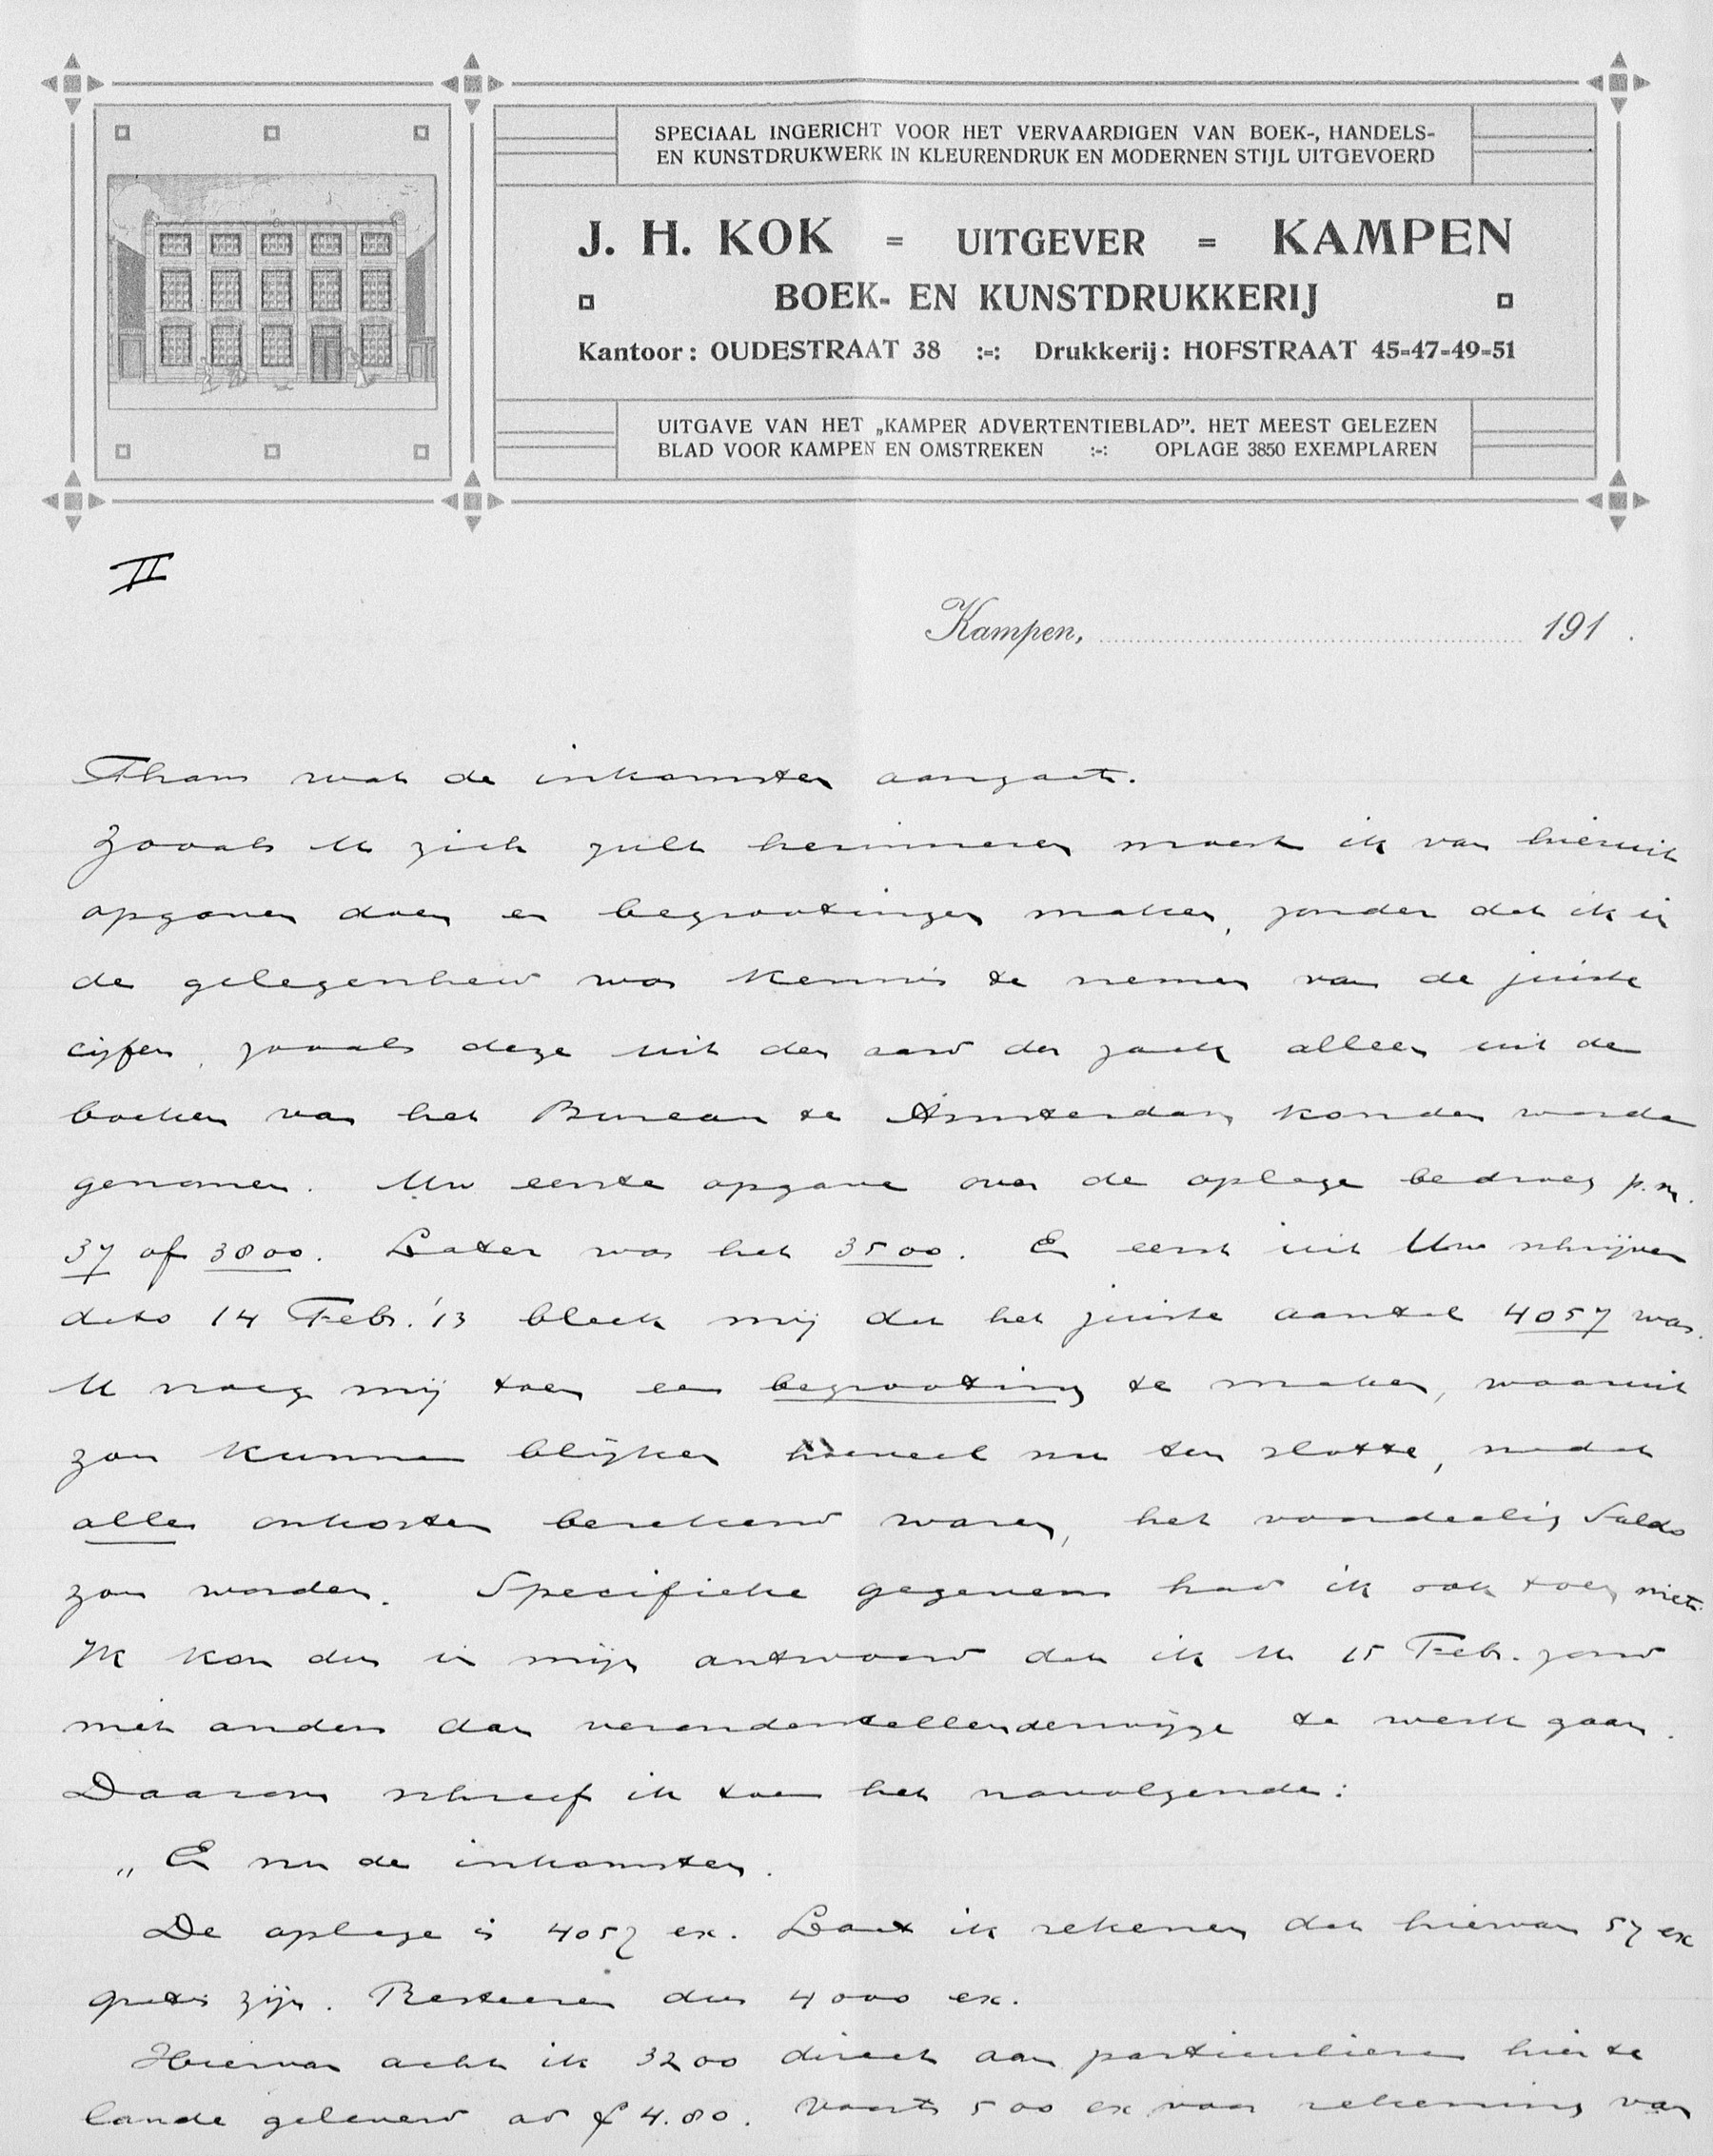 SPECIAAL INGERICHT VOOR HET VERVAARDIGEN VAN BOEK-, HANDELS-
EN KUNSTDRUKWERK IN KLEURENDRUK EN MODERNEN STIJL UITGEVOERD
J. H. KOK = UITGEVER = KAMPEN
BOEK- EN KUNSTDRUKKERIJ
Kantoor: OUDESTRAAT 38 :-: Drukkerij: HOFSTRAAT 45-47-49-51
UITGAVE VAN HET „KAMPER ADVERTENTIEBLAD”. HET MEEST GELEZEN
BLAD VOOR KAMPEN EN OMSTREKEN :-: OPLAGE 3850 EXEMPLAREN
II
Kampen, 191 .
Thans wat de inkomsten aangaat.
Zooals U zich zult herinneren moest ik van hieruit
opgaven doen en begrootingen maken, zonder dat ik in
de gelegenheid was kennis te nemen van de juiste
cijfers, zooals deze uit den aard der zaak alleen uit de
boeken van het Bureau te Amsterdam konden worden
genomen. Uw eerste opgave over de oplage bedroeg p.m.
37 of 3800. Later was het 3500. En eerst uit Uw schrijven
dato 14 Febr. '13 bleek mij dat het juiste aantal 4057 was.
U vroeg mij toen een begrooting te maken, waaruit
zou kunnen blijken hoeveel nu ten slotte, nadat
alle onkosten berekend waren, het voordeelig Saldo
zou worden. Specifieke gegevens had ik ook toen niet.
Ik kon dus in mijn antwoord dat ik U 15 Febr. zond
niet anders dan veronderstellenderwijze te werk gaan.
Daarom schreef ik toen het navolgende:
„En nu de inkomsten.
De oplage is 4057 ex. Laat ik rekenen dat hiervan 57 ex
gratis zijn. Resteeren dus 4000 ex.
Hiervan acht ik 3200 direct aan particulieren hier te
lande geleverd ad f 4.80. Voorts 500 ex voor rekening van